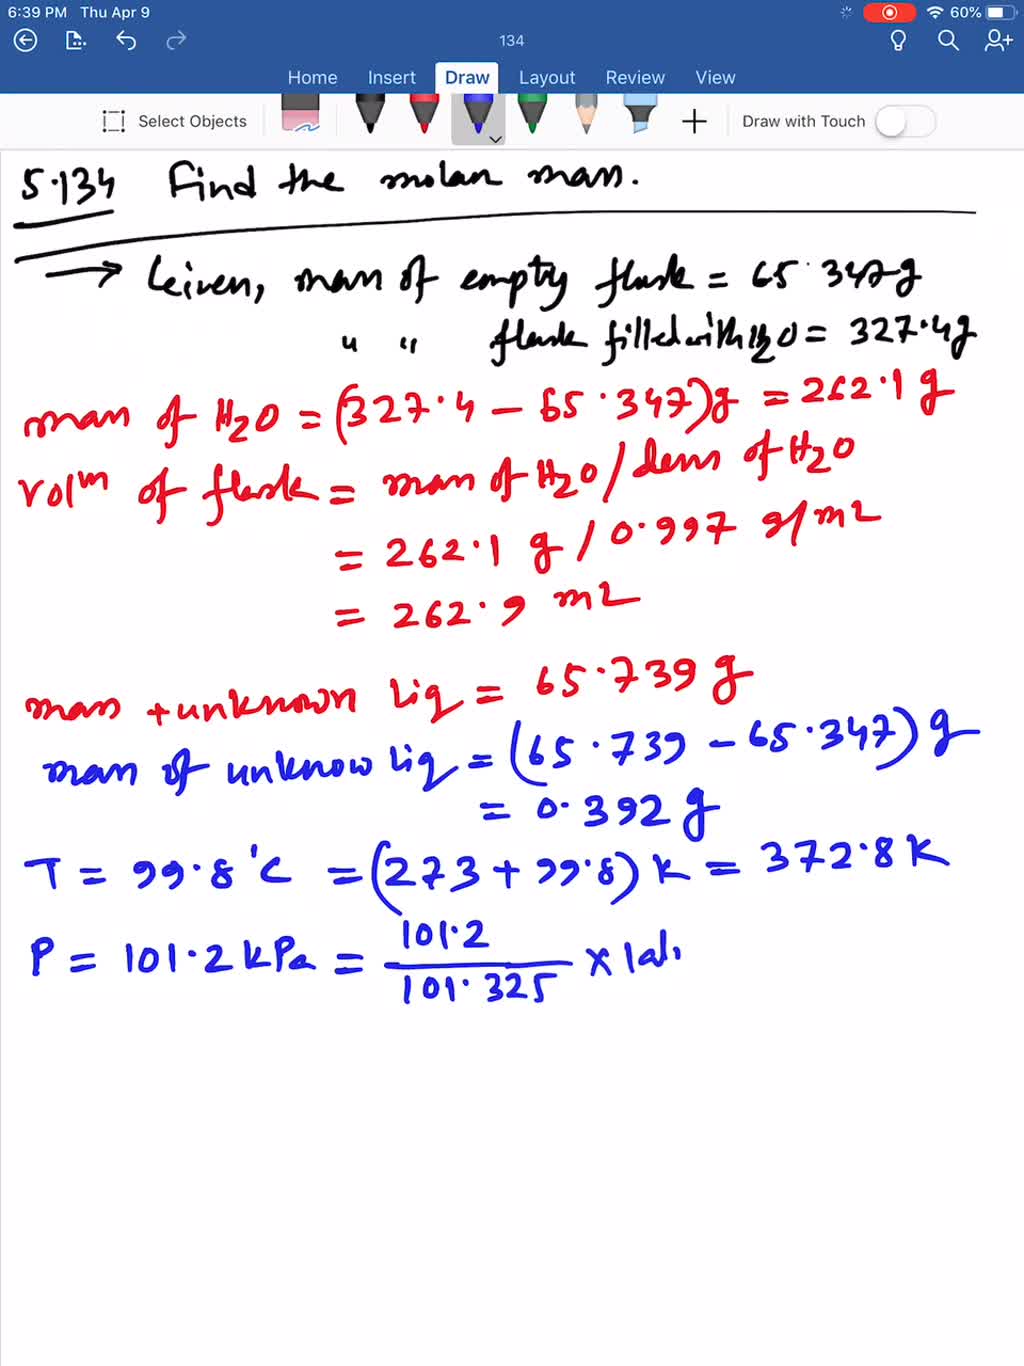 6:39 PM Thu Apr 9 60%
134
Home Insert Draw Layout Review View
Select Objects Draw with Touch
5.134 Find the molar mass.
Given, mass of empty flask = 65.347g
" " flask filled with H2O = 327.4g
mass of H2O = (327.4 - 65.347)g = 262.1 g
volm of flask = mass of H2O / dens of H2O
= 262.1 g / 0.997 g/mL
= 262.9 mL
mass + unknown liq = 65.739 g
mass of unknow liq = (65.739 - 65.347) g
= 0.392 g
T = 99.8°C = (273 + 99.8) K = 372.8 K
P = 101.2 kPa = 101.2 / 101.325 × 1 at